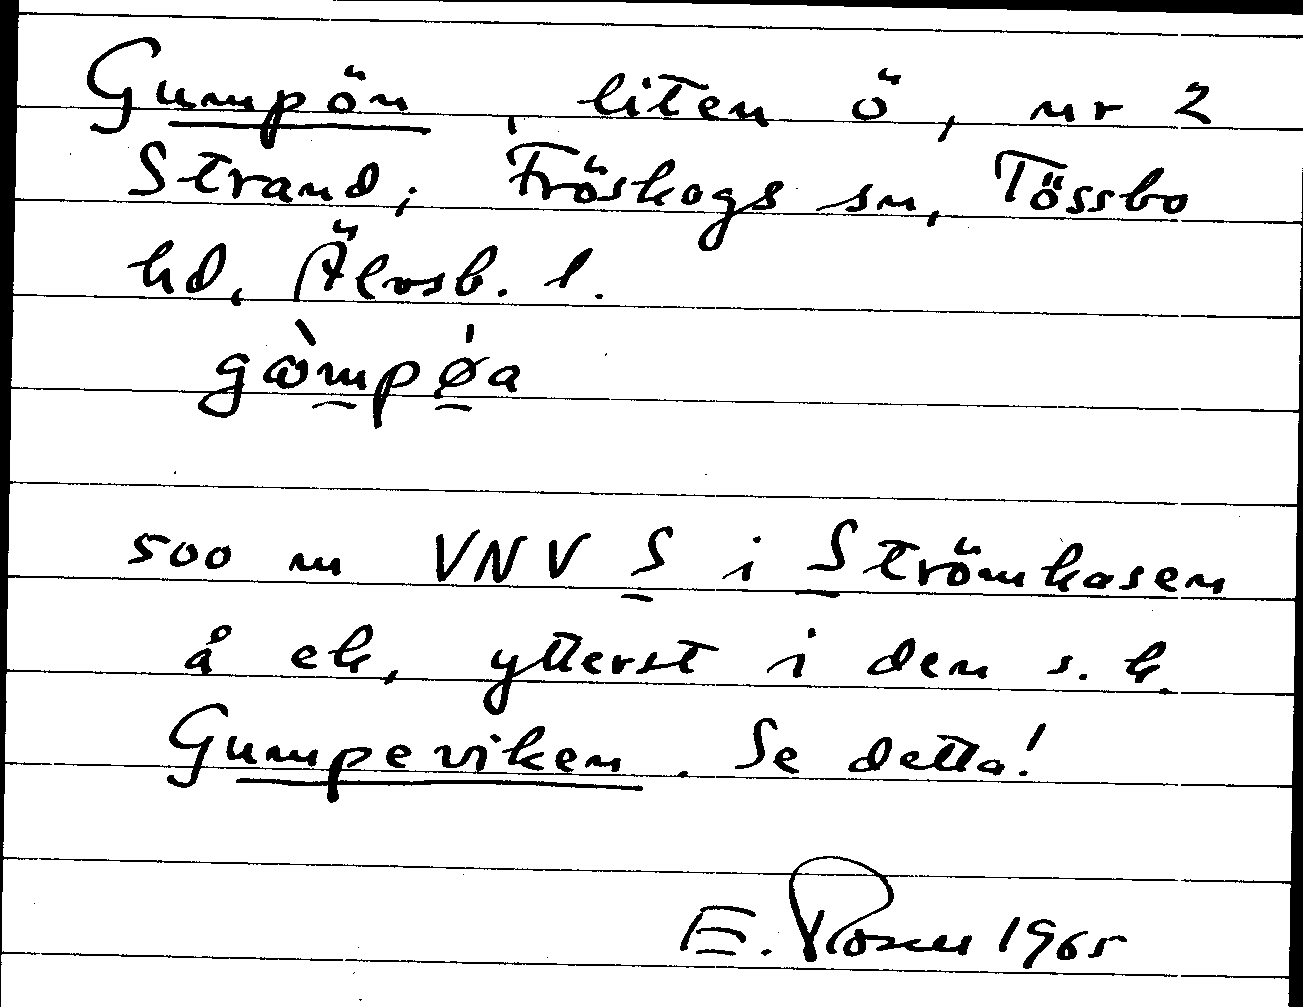 Gumpön, liten ö, nr 2
Strand, Fröskogs sn, Tössbo
hd, Älvsb. l.
500 m VNV S i Strömkasen
å ek, ytterst i den s. k.
Gumpeviken. Se detta!
E. Rosell 1965